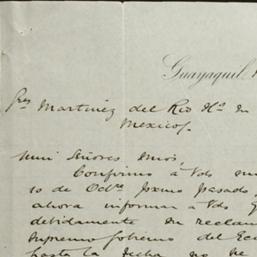 Guayaquil,
Sres Martinez del Rio Hos en
Mexico.
Muy Señores mios,
Confirmo á Vds
10 de Octre pxmo pasado,
ahora informar á Vds
debidamente en reclam
Supremo Gobierno del Ecu
hasta la fecha no he